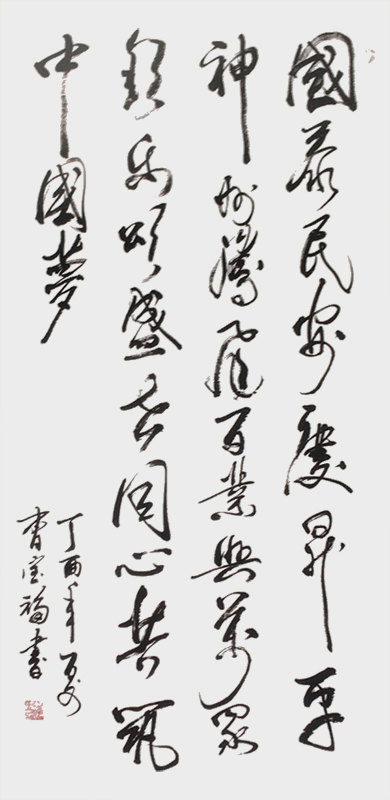 國泰民安慶昇平
神州騰飛百業興萬眾
歡樂頌盛世同心共筑
中國夢
丁酉年
宝福書